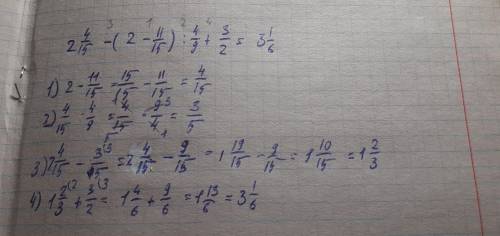 3 1 2 4
2 4/15 - ( 2 - 11/15 ) : 4/9 + 3/2 = 3 1/6
1) 2 - 11/15 = 15/15 - 11/15 = 4/15
2) 4/15 : 4/9 = 4/15 · 9/4 = 3/5
3) 2 4/15 - 3/5 = 2 4/15 - 9/15 = 1 19/15 - 9/15 = 1 10/15 = 1 2/3
4) 1 2/3 + 3/2 = 1 4/6 + 9/6 = 1 13/6 = 3 1/6